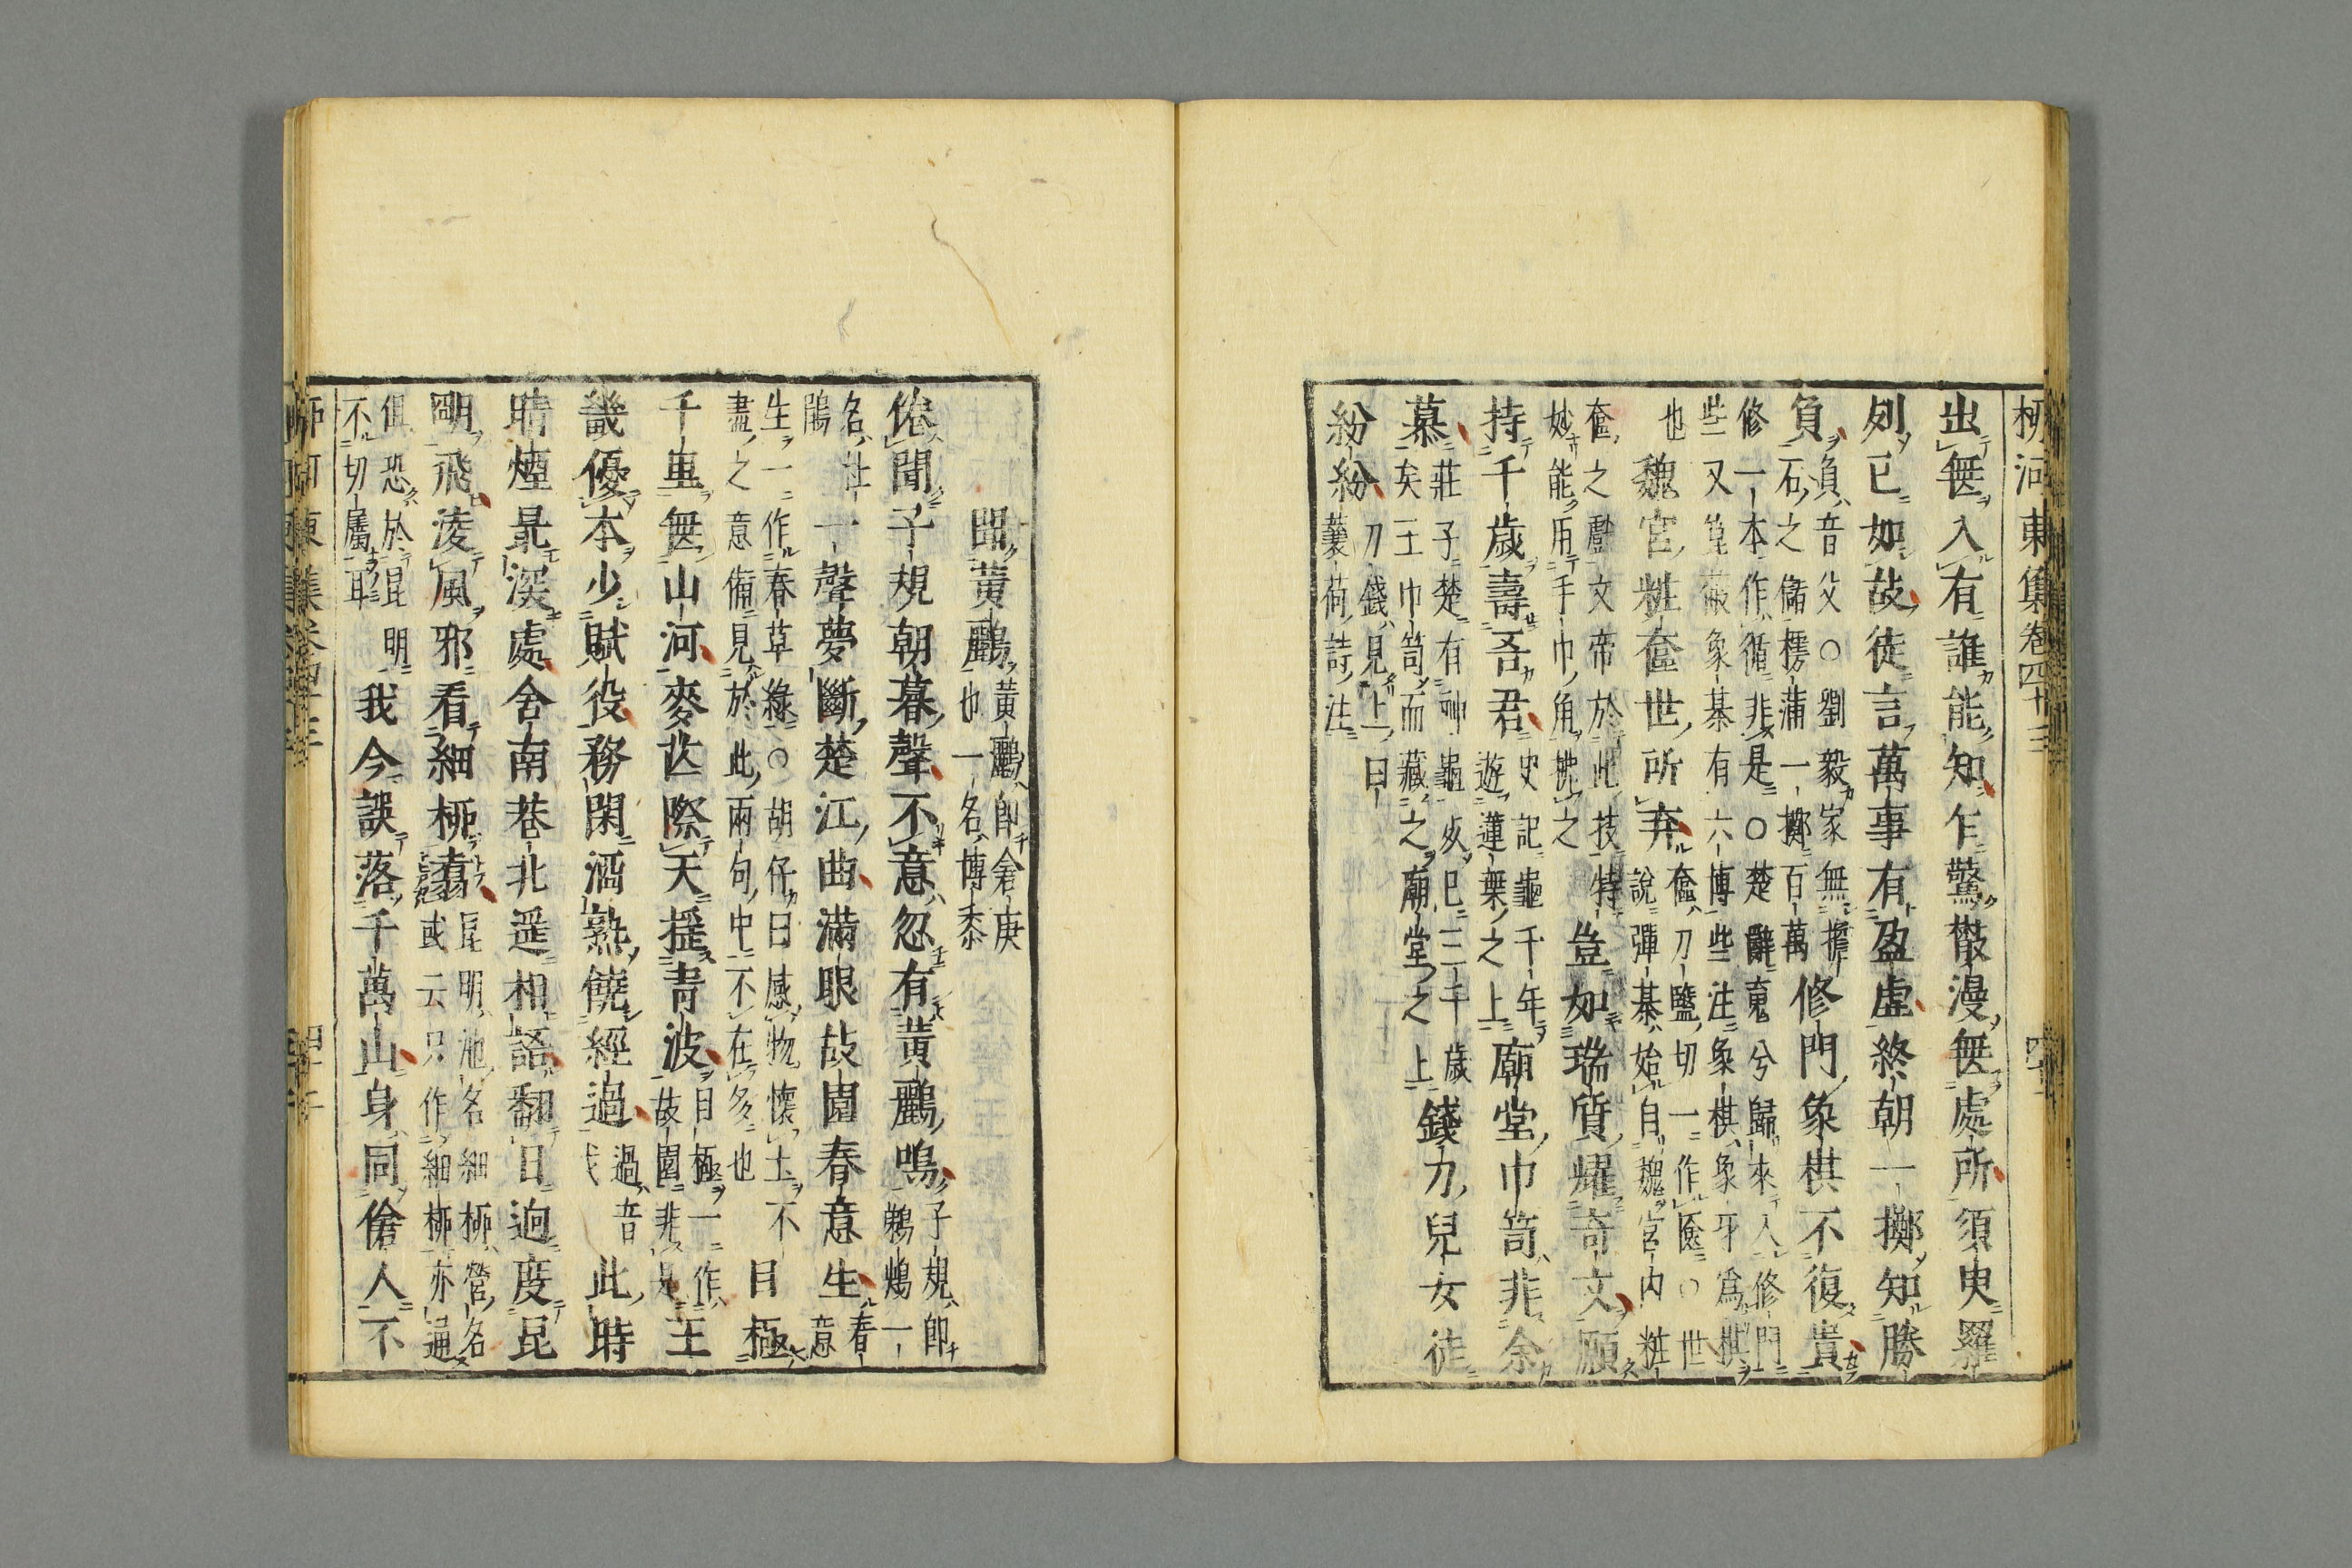 柳河東集卷四十三
出無入有誰能知乍驚散漫無處所須臾羅
列已如故徒言萬事有盈虛終朝一擲知勝
負
負音父○劉毅家無擔
石之儲樗蒲一擲百萬
修門象棋不復貴
修一本作循非是○楚辭䰟兮歸來入修門
些又篦蔽象棊有六博些注象棋象牙爲棋
也
魏宮粧奩世所弃
奩刀鹽切一作匳○世
說彈棊始自魏宮內粧
奩之戲文帝於此技特
妙能用手巾角拂之
豈如瑞質耀奇文願
持千歲壽吾君
史記龜千年
遊蓮葉之上
廟堂巾笥非余
慕
莊子楚有神龜死已三千歲
矣王巾笥而藏之廟堂之上
錢刀兒女徒
紛紛
刀錢見上曰
蘘荷詩注
聞黃鸝
黃鸝即倉庚
也一名博黍
倦聞子規朝暮聲不意忽有黃鸝鳴
子規即
鶗鴂一
名杜
鵑
一聲夢斷楚江曲滿眼故園春意生
春
意
生一作春草綠○胡仔曰感物懷土不
盡之意備見於此兩句中不在多也
目極
千里無山河麥芒際天搖青波
目極一作
故園非是
王
畿優本少賦役務閑酒熟饒經過
過音
戈
此時
晴煙最深處舍南巷北遥相語翻日迥度昆
明飛凌風邪看細柳翥
昆明池名細柳營名
或云只作細柳亦通
俱恐於昆明
不切屬耳
我今誤落千萬山身同傖人不